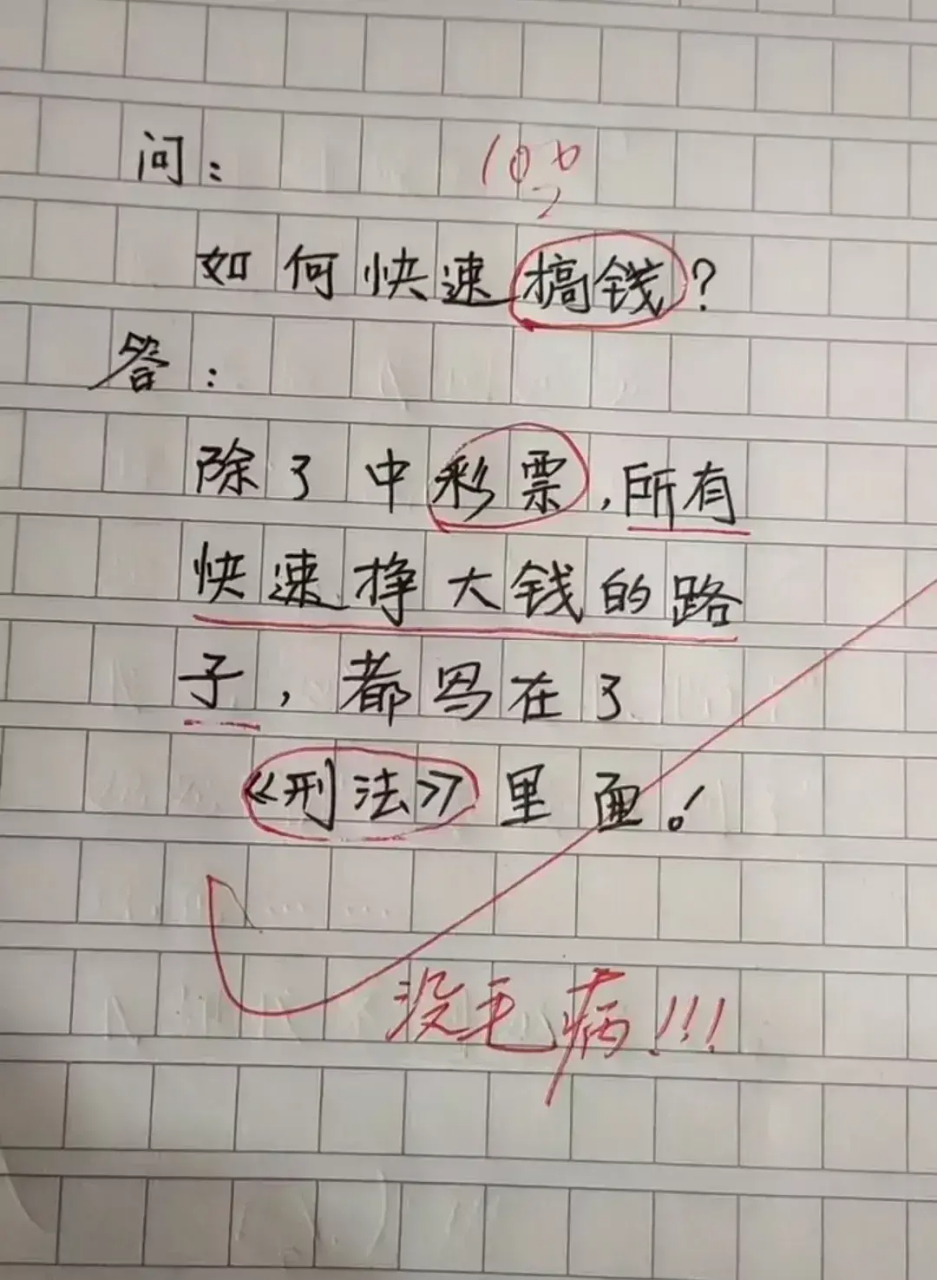 问：
100
如何快速搞钱？
答：
除了中彩票，所有
快速挣大钱的路
子，都写在了
《刑法》里面！
没毛病!!!